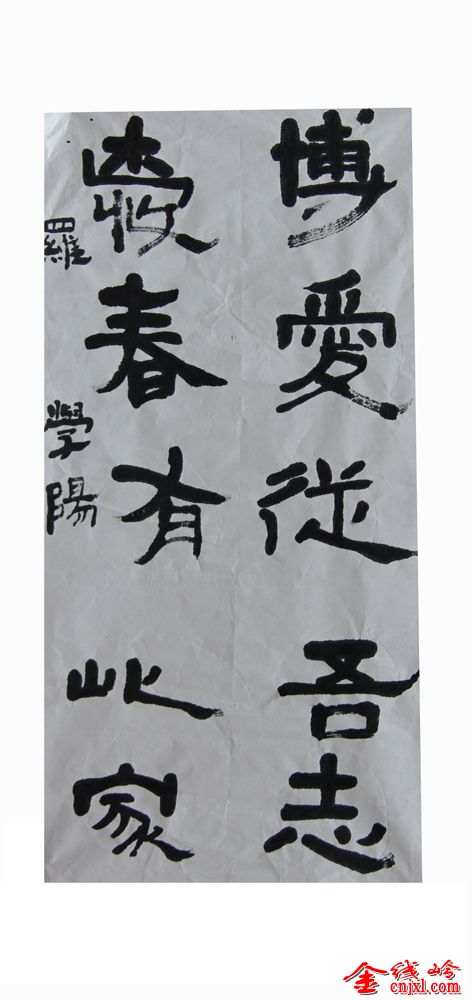 博愛従吾志
春有此家
羅學陽
金线岭
cnjxl.com